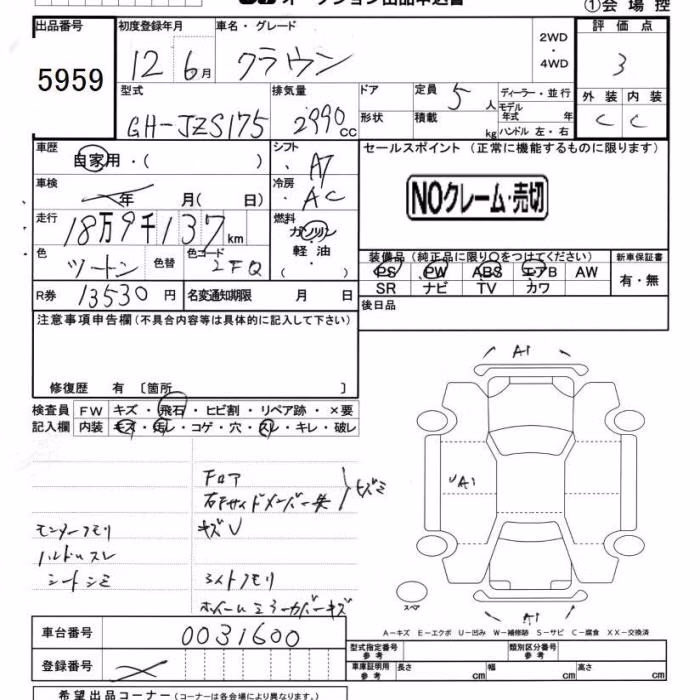 オークション出品申込書
①会場控
出品番号 5959
初度登録年月 12年 6月
車名・グレード クラウン
2WD・4WD
評価点 3
外装 C 内装 C
型式 GH-JZS175
排気量 2990cc
ドア 形状
定員 5人
積載 kg
ディーラー・並行
モデル年式 年
ハンドル 左・右
車歴 自家用・( )
シフト AT
セールスポイント (正常に機能するものに限ります)
NOクレーム・売切
車検 年 月( 日)
冷房 AC
走行 18万9千137km
燃料 ガソリン 軽油・( )
色 ツートン 色替 色コード 2FQ
装備品 (純正品に限り○をつけてください)
PS PW ABS エアB AW
SR ナビ TV カワ
新車保証書 有・無
R券 13530円 名変通知期限 月 日
後日品
注意事項申告欄 (不具合内容等は具体的に記入して下さい)
修復歴 有 〔箇所 〕
検査員記入欄
FW キズ・飛石・ヒビ割・リペア跡・×要
内装 キズ・汚レ・コゲ・穴・スレ・キレ・破レ
フロア
キズU
ハンドルスレ
シートシミ
ホイールミラーカバーキズ
A1
UA1
A1
スペア
A-キズ E-エクボ U-凹み W-補修跡 S-サビ C-腐食 XX-交換済
車台番号 0031600
登録番号
型式指定番号 参考 類別区分番号
車庫証明用 参考 長さ cm 幅 cm 高さ cm
希望出品コーナー (コーナーは各会場により異なります。)